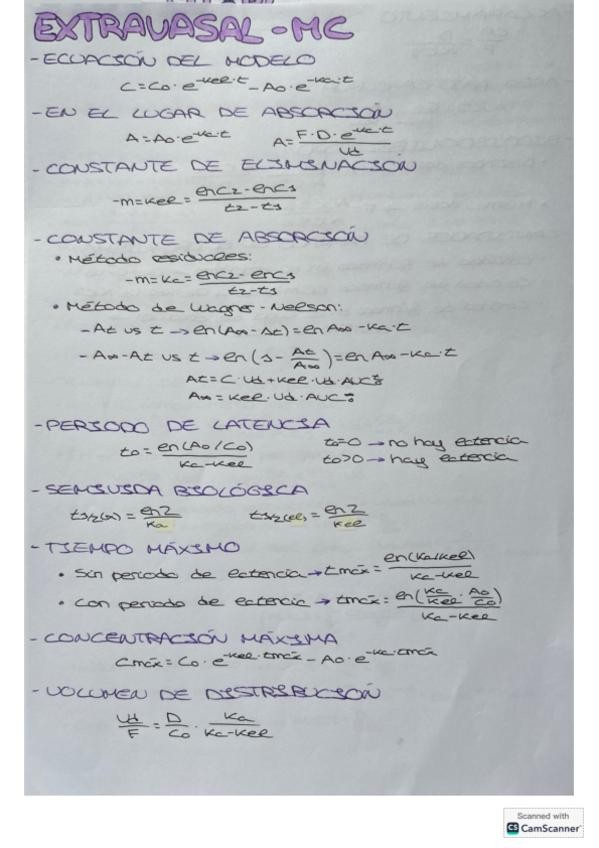 EXTRAVASAL - MC
- ECUACIÓN DEL MODELO
C = Co · e^-Kel·t - Ao · e^-Ka·t
- EN EL LUGAR DE ABSORCIÓN
A = Ao · e^-Ka·t    A = F · D · e^-Ka·t / Vd
- CONSTANTE DE ELIMINACIÓN
-m = Kel = lnC2 - lnC1 / t2 - t1
- CONSTANTE DE ABSORCIÓN
• Método residuales:
-m = Ka = lnC2 - lnC1 / t2 - t1
• Método de Wagner - Nelson:
- At vs t → ln(A∞ - At) = ln A∞ - Ka · t
- A∞ - At vs t → ln(1 - At/A∞) = ln A∞ - Ka · t
At = C · Vd + Kel · Vd · AUC t 0
A∞ = Kel · Vd · AUC ∞ 0
- PERIODO DE LATENCIA
to = ln(Ao/Co) / Ka - Kel    to=0 → no hay latencia
to>0 → hay latencia
- SEMIVIDA BIOLÓGICA
t1/2(a) = ln2 / Ka    t1/2(el) = ln2 / Kel
- TIEMPO MÁXIMO
• Sin periodo de latencia → tmáx = ln(Ka/Kel) / Ka - Kel
• Con periodo de latencia → tmáx = ln(Ka/Kel · Ao/Co) / Ka - Kel
- CONCENTRACIÓN MÁXIMA
Cmáx = Co · e^-Kel·tmáx - Ao · e^-Ka·tmáx
- VOLUMEN DE DISTRIBUCIÓN
Vd/F = D/Co · Ka / Ka - Kel
Scanned with
CS CamScanner